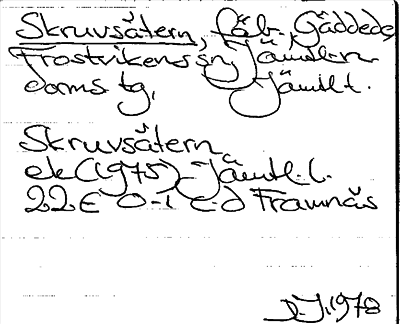 Skruvsåtern, fäb, Gäddede,
Frostvikens sn, Jämtl:n
doms tg, Jämtl t.
Skruvsåtern
ek (1975) Jämtl. l.
22E 0-1 c-d Framnäs
D.J. 1978